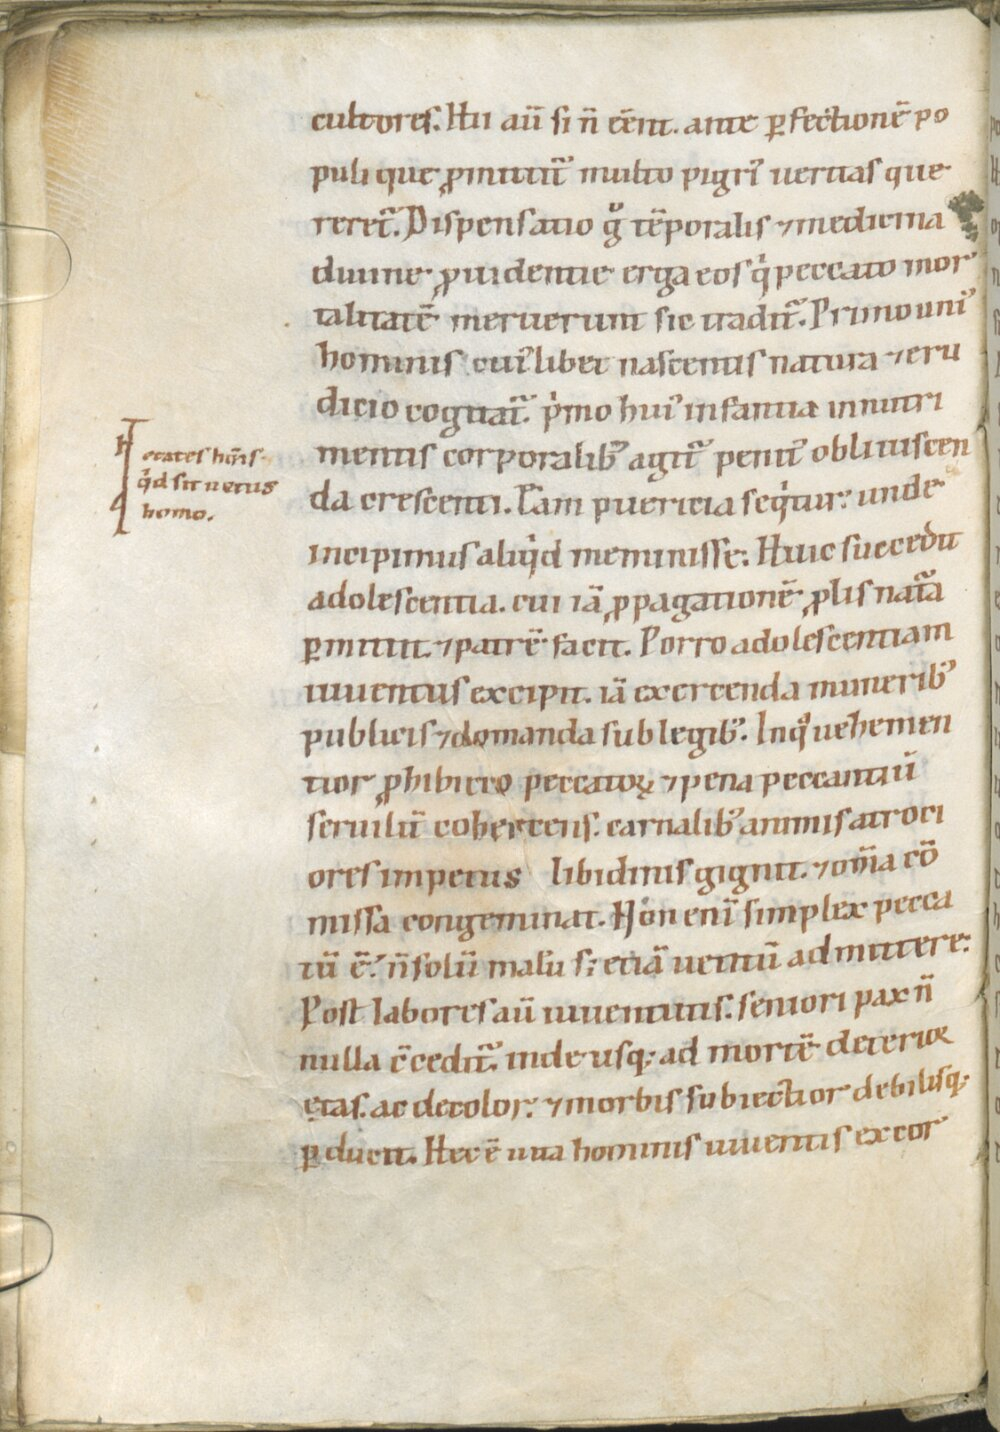 cultores. Hii aū si n̄ eēnt. ante ꝑfectionē po
puli quę ꝓmittit᷑ multo pigri᷒ ueritas que
reret᷑. Dispensatio gͦ tēporalis ⁊ medicina
diuinę ꝓuidentię erga eos qͥ peccato mor
talitatē meruerunt sic tradit᷑. Primo uni᷒
hominis cui᷒libet nascentis natura ⁊ eru
dicio cogitat᷑. pͥmo hui᷒ infantia in nutri
mentis corporalib᷒ agit᷑ penit᷒ obliuiscen
da crescenti. Eam puericia seqͥtur: unde
incipimus aliqͥd meminisse. Huic succedit
adolescentia. cui iā ꝓpagationē ꝓlis nat᷑a
ꝑmittit. ⁊ patrē facit. Porro adolescentiam
iuuentus excipit. iā exercenda munerib᷒
publicis ⁊ domanda sub legib᷒. In qͣ uehemen
tior ꝓhibitio peccatoꝝ ⁊ pena peccantiū
seruilit̄ cohercens. carnalib᷒ animis atroci
ores impetus libidinis gignit. ⁊ om̄ia cō
missa congeminat. Non eni᷒ simplex pecca
tū ē. n̄ solū malū s; etiā uetitū admittere:
Post labores aū iuuentutis. seniori pax n̄
nulla c̄cedit᷑. inde usq; ad mortē deterior
ętas. ac decolor. ⁊ morbis subiectior debilisq;
ꝑducit. Hec ē uita hominis uiuentis ex cor
etates hōīs
qͥd sit uetus
homo.